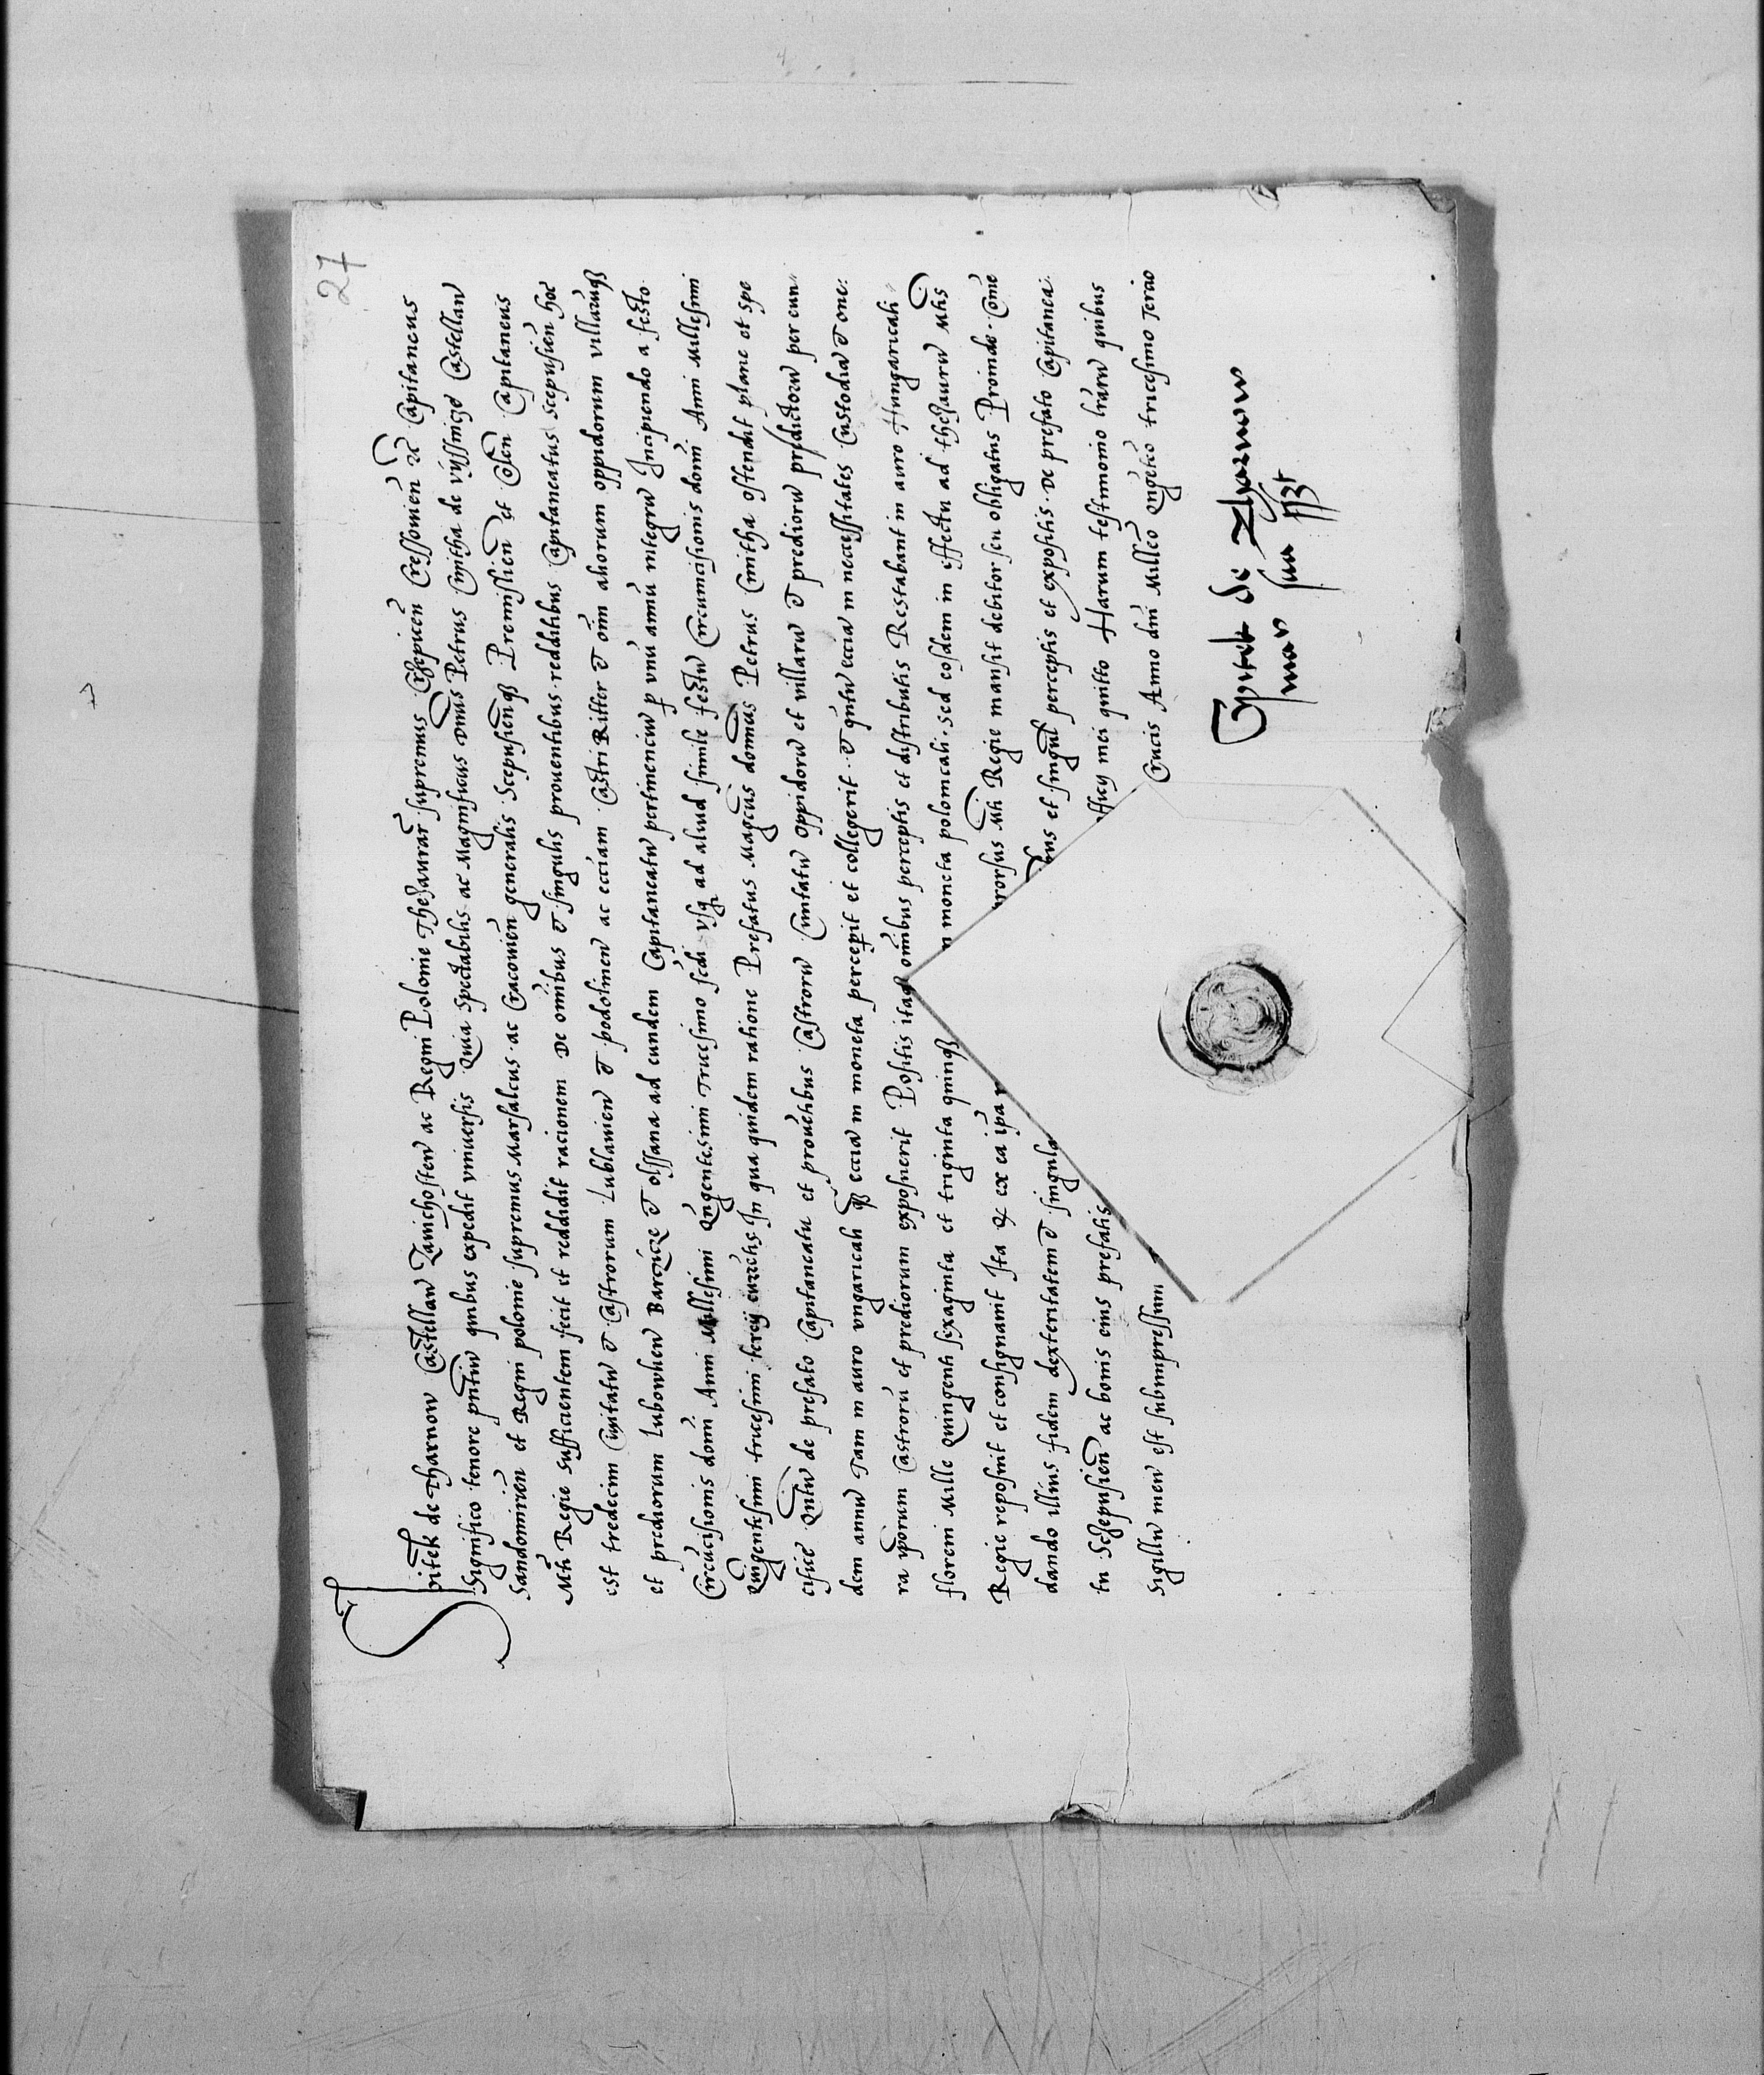 27
Spitek de Tharnow Castellan Zawichosten ac Regni Polonie Thezaurar supremus Chepicen Cressowien zc Capitaneus
Significo tenore pntiu quibus expedit vniuersis Quia Spectabilis ac Magnificus Dnus Petrus Cmitha de vyssnicze Castellan
Sandomirien et Regni polonie supremus Marsalcus ac Cracouien generalis Scepusienqz Premislien et Colen Capitaneus
Mti Regie sufficientem fecit et reddidit racionem De omibus & singulis prouentibus reddittibus Capitaneatus Scepusien hoc
est tredecim Cuitatu & Castrorum Lublauien & podolinen ac eciam Castri Ritter & oim aliorum oppidorum villaruqz
et prediorum Lubowhen & olssana ad eundem Capitaneatu pertinenciu p vnu annu integru Incipiendo a festo
Circucisionis domi Anni Millesimi Qngentesimi Tricesimo scdi vsq ad aliud simile festu Circumcisionis domi Anni Millesimi
Quigentesimi tricesimi tercij currentis In qua quidem ratione Prefatus Magcus domnus Petrus Cmitha ostendit plane et spe
cifice Qntu de prefato Capitaneatu et prouetibus Castroru Ciuitatu oppidoru et villaru & predioru predictoru per eun
dem annu Tam in auro vngaricali qz eccia in moneta percepit et collegerit & qntu eccia in necessitates Custodia & one
ra ipsorum Castroru et prediorum exposuerit Positis itaq omibus perceptis et distributis Restabant in auro Hungaricali
floreni Mille Quingenti sexaginta et triginta quinqz n moneta polonicali sed eosdem in effectu ad thezauru Mtis
Regie reposuit et consignauit Ita q ex ea ipa r rorsus Mti Regie mansit debitor seu obligatus Proinde Come
dando illius fidem dexteritatem & singula bus et singul perceptis et expositis De prefato Capitanea
tu Schepusien ac bonis eius prefatis officij mei quitto Harum testimonio lraru quibus
Sigillu meu est subimpressum Crucis Anno dni Milleo Qngeteo tricesimo Tercio
Spitek de Tharnow
man sua sszt